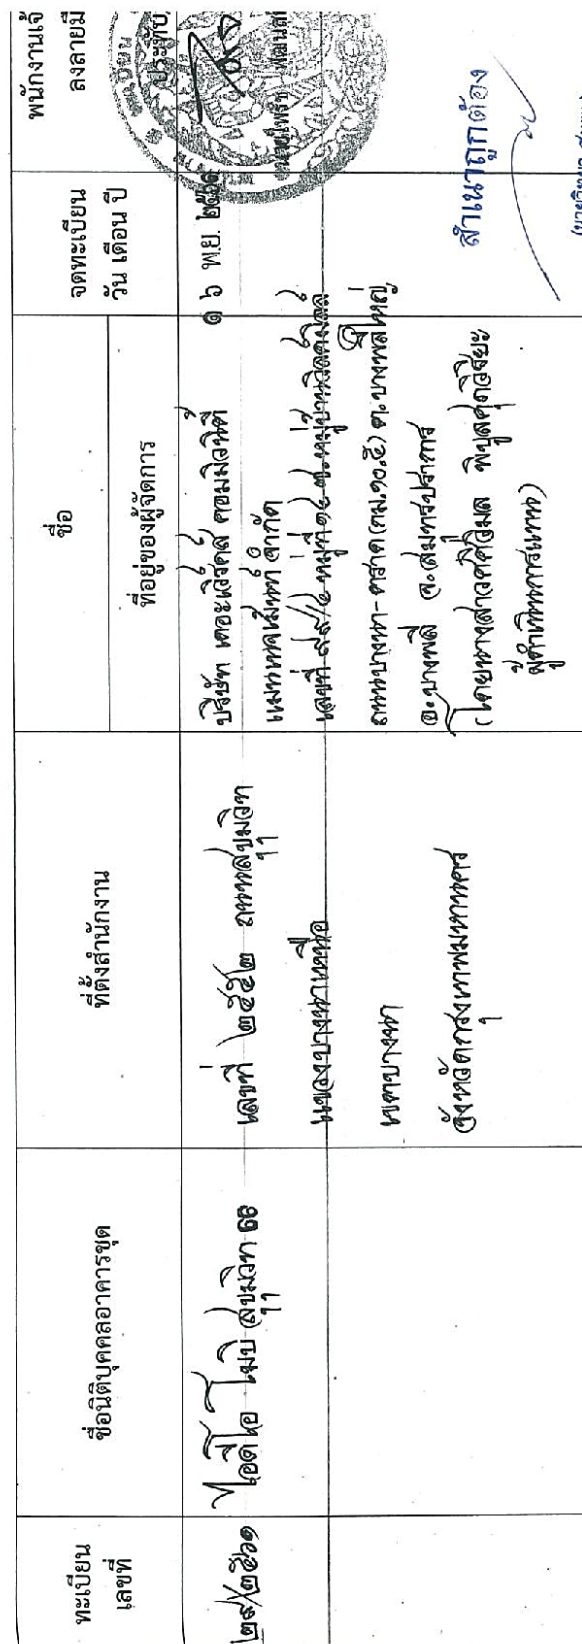 ทะเบียน
เลขที่
ชื่อนิติบุคคลอาคารชุด
ที่ตั้งสำนักงาน
ชื่อ
ที่อยู่ของผู้จัดการ
จดทะเบียน
วัน เดือน ปี
พนักงานเจ้
ลงลายมื
ประทับ
๒๙/๒๕๖๑
ไอดีโอ โมบิ สุขุมวิท ๖๖
เลขที่ ๒๕๕๒ ถนนสุขุมวิท
แขวงบางนาเหนือ
เขตบางนา
จังหวัดกรุงเทพมหานคร
บริษัท เดอะเวิร์คส์ คอมมิวนิตี้
แมเนจเม้นท์ จำกัด
เลขที่ ๙๙/๔ หมู่ที่ ๑๔
ถนนบางนา-ตราด (กม.๑๐.๕) ต.บางพลีใหญ่
อ.บางพลี จ.สมุทรปราการ
(โดยนางสาวศศิวิมล
ผู้ดำเนินการแทน)
๑๖ พ.ย. ๒๕๖๑
สำเนาถูกต้อง